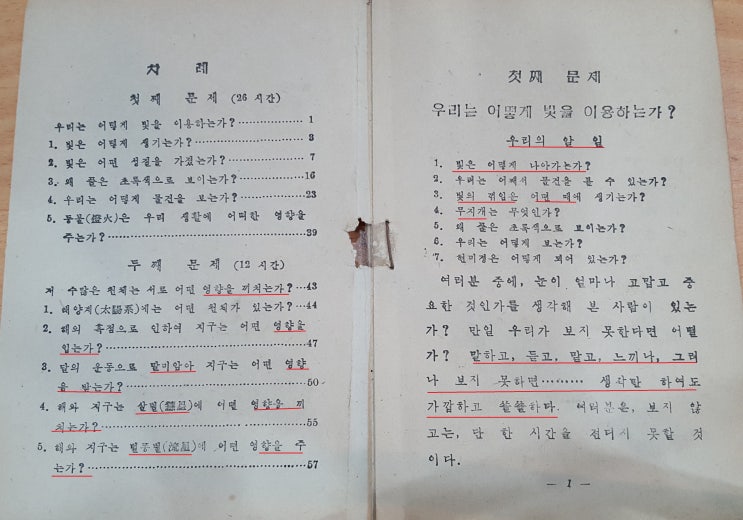 차 례
첫 째 문 제 (26 시간)
우리는 어떻게 빛을 이용하는가? 1
1. 빛은 어떻게 생기는가? 3
2. 빛은 어떤 성질을 가졌는가? 7
3. 왜 풀은 초록색으로 보이는가? 16
4. 우리는 어떻게 물건을 보는가? 23
5. 등불(燈火)은 우리 생활에 어떠한 영향을
주는가? 39
두 째 문 제 (12 시간)
저 수많은 천체는 서로 어떤 영향을 끼치는가? 43
1. 태양계(太陽系)에는 어떤 천체가 있는가? 44
2. 해의 흑점으로 인하여 지구는 어떤 영향을
입는가? 47
3. 달의 운동으로 말미암아 지구는 어떤 영향
을 받는가? 50
4. 해와 지구는 살별(彗星)에 어떤 영향을 끼
치는가? 55
5. 해와 지구는 별똥별(流星)에 어떤 영향을 주
는가? 57
첫째 문 제
우리는 어떻게 빛을 이용하는가?
우리의 할 일
1. 빛은 어떻게 나아가는가?
2. 우리는 어째서 물건을 볼 수 있는가?
3. 빛의 꺾임은 어떤 때에 생기는가?
4. 무지개는 무엇인가?
5. 왜 풀은 초록색으로 보이는가?
6. 우리는 어떻게 보는가?
7. 현미경은 어떻게 되어 있는가?
여러분 중에, 눈이 얼마나 고맙고 중
요한 것인가를 생각해 본 사람이 있는
가? 만일 우리가 보지 못한다면 어떨
가? 말하고, 듣고, 맡고, 느끼나, 그러
나 보지 못하면……… 생각만 하여도
갑갑하고 쓸쓸하다. 여러분은, 보지 않
고는, 단 한 시간을 견디지 못할 것
이다.
— 1 —